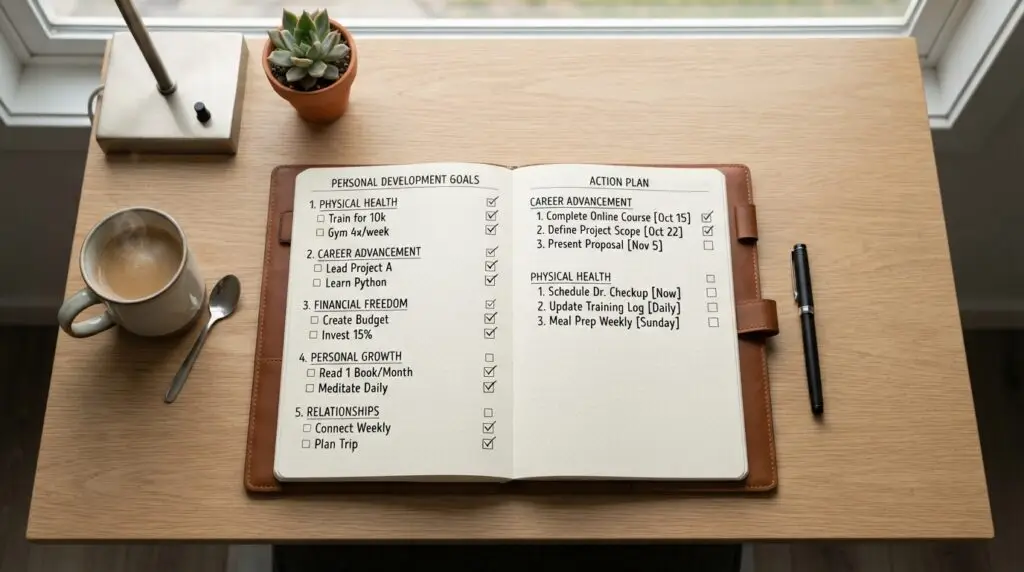 PERSONAL DEVELOPMENT GOALS
1. PHYSICAL HEALTH ☑
☐ Train for 10k ☑
☐ Gym 4x/week ☑
2. CAREER ADVANCEMENT ☑
☐ Lead Project A ☑
☐ Learn Python ☑
3. FINANCIAL FREEDOM ☑
☐ Create Budget ☑
☐ Invest 15% ☑
4. PERSONAL GROWTH ☐
☐ Read 1 Book/Month ☑
☐ Meditate Daily ☑
5. RELATIONSHIPS ☐
☐ Connect Weekly ☑
☐ Plan Trip ☑
ACTION PLAN
CAREER ADVANCEMENT
1. Complete Online Course [Oct 15] ☑
2. Define Project Scope [Oct 22] ☑
3. Present Proposal [Nov 5] ☐
PHYSICAL HEALTH ☐
1. Schedule Dr. Checkup [Now] ☐
2. Update Training Log [Daily] ☐
3. Meal Prep Weekly [Sunday] ☐